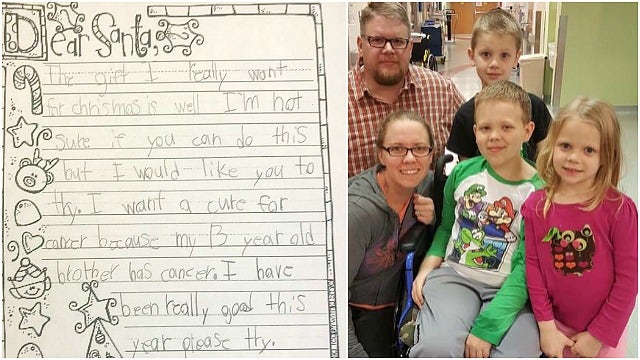 Dear Santa,
The gift I really want
for christmas is well I'm not
Sure if you can do this
but I would like you to
try. I want a cure for
cancer because my 13 year old
brother has cancer. I have
been really good this
year please try.